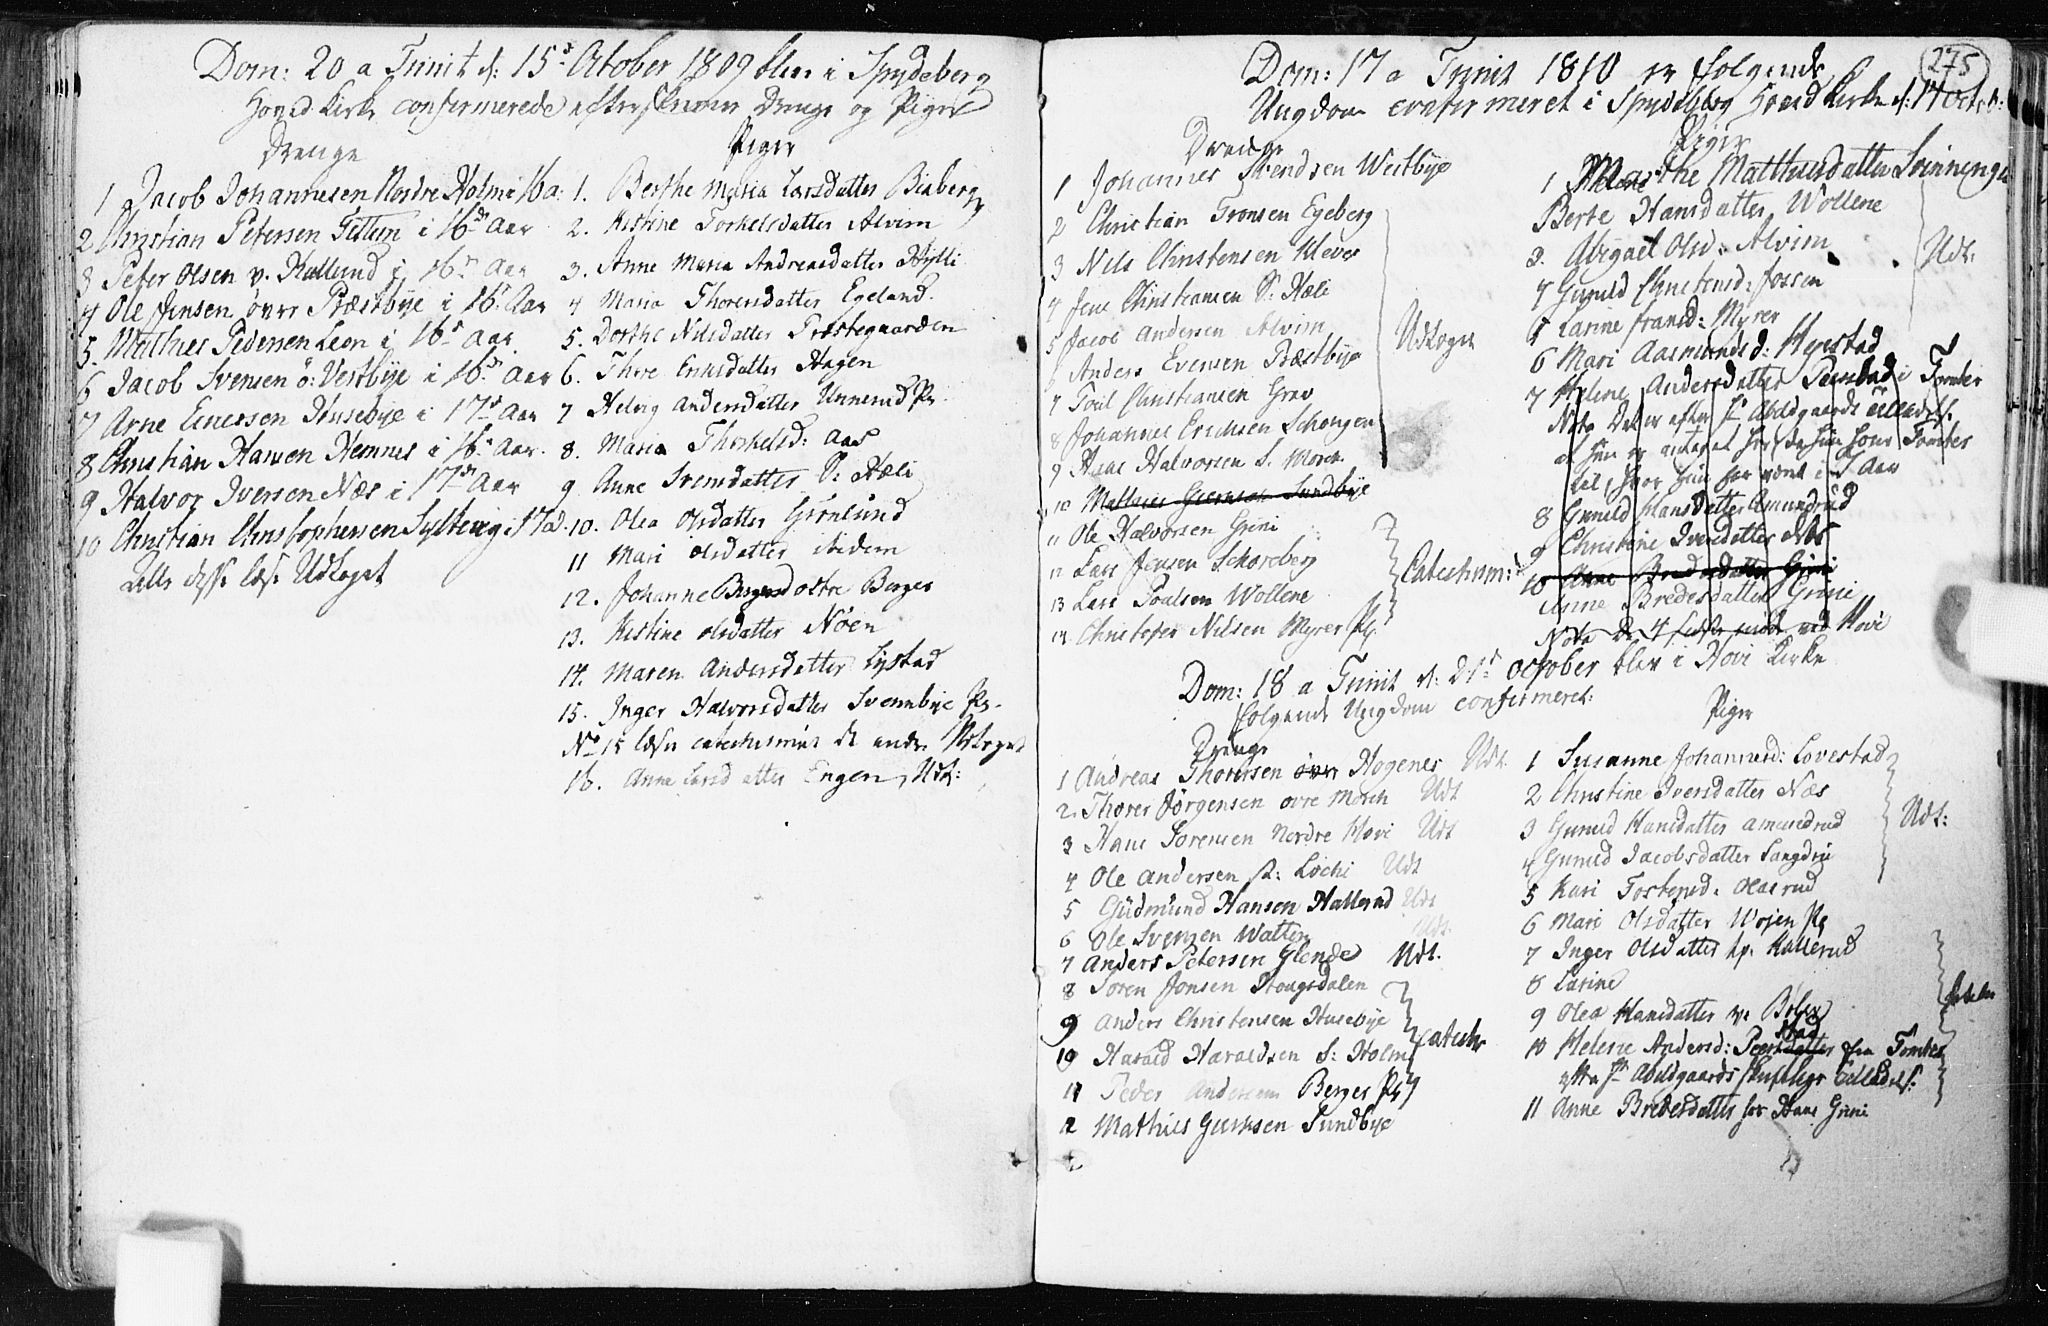 Dom: 20 a Trinit d: 15d October 1809 blev i Spydeberg
Hoved Kirke confirmerede efterskrevne Drenge og Piger
Drenge
1 Jacob Johannesen Nordre Holm i 16 a:
2 Christian Petersen i 16de Aar
3 Peter Olsen v. Kallerud i 16de Aar
4 Ole Jensen øvre Præstbye i 16de Aar
5. Mathies Pedersen Leon i 16de Aar
6 Jacob Svensen ö: Vestbye i 16de Aar
7 Arne Einersen Husebye i 17de Aar
8 Christian Hansen Hemnes i 16de Aar.
9 Halvor Iversen Næs i 17de Aar
10 Christian Christophersen i 17 a.
Alle læst Udtoget
Piger
1. Berthe Maria Larsdatter Biaberg
2. Kistine Torkelsdatter Alvim
3. Anne Maria Andreasdatter Hylli
4 Maria Thorersdatter Egeland.
5. Dorthe Nilsdatter Præstegaarden
6. Thore Eriksdatter Hagen
7 Helvig Andersdatter Unnerud Pl.
8. Maria Thorkelsd: Aas
9 Anne Svensdatter S: Hæli
10. Olea Olsdatter Grønlund
11 Mari Olsdatter
12. Johanne Berger
13. Kistine Olsdatter Nöen
14. Maren Andersdatter Lystad
15. Inger Halvorsdatter Svennbye Pl.
No 15 læser catechismus de andre Udtoget
16. Anne Larsdatter Engen, Udt:
275
Dom: 17 a Trinit 1810 er følgende
Ungdom confirmeret i Spydeberg Hoved Kirke d: 14 Octob:
Drenge
1 Johannes Svendsen Westbye
2 Christian Tronsen Egeberg
3 Nils Christensen Kleven
4 Jens Christiansen S: Hæli
5 Jacob Andersen Alvim
6 Anders Evensen Præstbye
7 Povel Christiansen Grav
8 Johannes Erichsen Schongen
9 Hans Halvorsen S. Mørch
10 Mathies Gulmsen Sundbye
11 Ole Halvorsen Grini
12 Lars Jensen Schareberg
13 Lars Poulsen Wollene
14 Christopher Nilsen Myrer Pl.
Udtoget
Catechism:
Piger
1 Marthe Mathiesdatter Svinning
Berte Hansdatter Wollene
3. Abigael Olsd: Alvim
4 Gunild Christensd: Fossen
5 Karine Fransd: Myrer
6 Mari Aasmundsd: Hyestad
7 Helene Andersdatter i Tomter
Nota Det er efter Hr Abildgaards tilladelse
at hun er antaget her, da hun hører Tomter
til, hvor hun har været i 1 Aar
8 Gunild Hansdatter Amundrud
9 Christine Iversdatter Næs
10 Anne Bredesdatter Grini
Anne Bredesdatter Grini
Nota De 4 sidste ved Hovi
Udt:
Dom: 18 a Trinit d: 21d October blev i Hovi Kirke
følgende Ungdom confirmeret:
Drenge
1 Andreas Thorersen øvre Hogenes Udt
2. Thorer Jørgensen øvre Mörch Udt
3 Hans Sörensen Nordre Hovi Udt
4 Ole Andersen St: Löchi Udt
5 Gudmund Hansen Hallerud Udt
6 Ole Svensen Watten Udt.
7 Anders Petersen Glende Udt.
8 Soren Jonsen Stougsdalen
9 Anders Christensen Husebye
10 Harald Haraldsen S: Holm
11 Peder Andersen Berger Pl
12 Mathies Gulmsen Sundbye
Catechis
Piger
1 Susanne Johannesd: Lovestad
2 Christine Iversdatter Næs
3 Gunild Hansdatter Amundrud
4 Gunild Jacobsdatter Langdrii
5 Kari Tostensd: Olasrud
6 Mari Olsdatter Wojen Pl
7 Inger Olsdatter Kallerud
8 Karine
9 Olea Hansdatter v. Bøler
10 Helene Andersd: fra Tomter
efter Hr Abildgaards skriftlige Tilladels:
11 Anne Bredesdatter for Hans Grini
Udt: